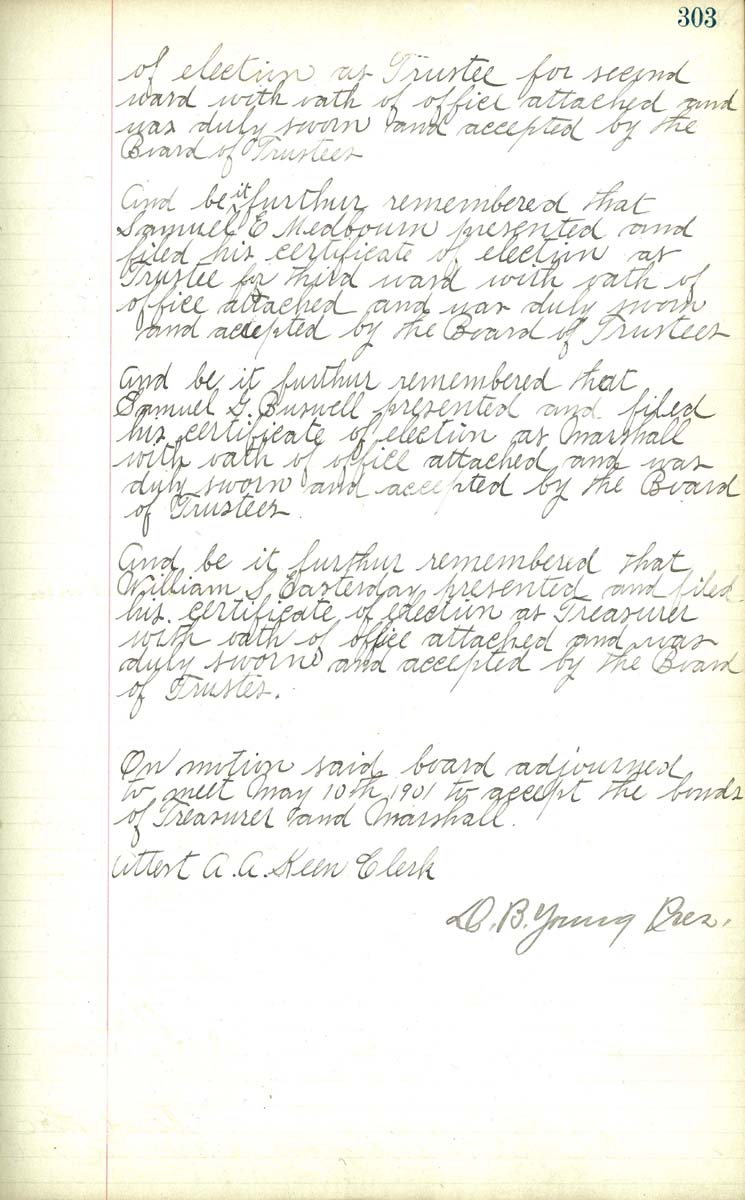 303
of election as Trustee for second
ward with oath of office attached and
was duly sworn and accepted by the
Board of Trustees
And be it furthur remembered that
Samuel E Medbourn presented and
filed his certificate of election as
Trustee for third ward with oath of
office attached and was duly sworn
and accepted by the Board of Trustees
And be it furthur remembered that
Samuel G. Buswell presented and filed
his certificate of election as Marshall
with oath of office attached and was
duly sworn and accepted by the Board
of Trustees.
And be it furthur remembered that
William S Easterday presented and filed
his certificate of election as Treasurer
with oath of office attached and was
duly sworn and accepted by the Board
of Trustes.
On motion said board adjourned
to meet May 10th 1901 to accept the bonds
of Treasurer and Marshall.
Attest A. A. Keen Clerk
D. B. Young Pres.